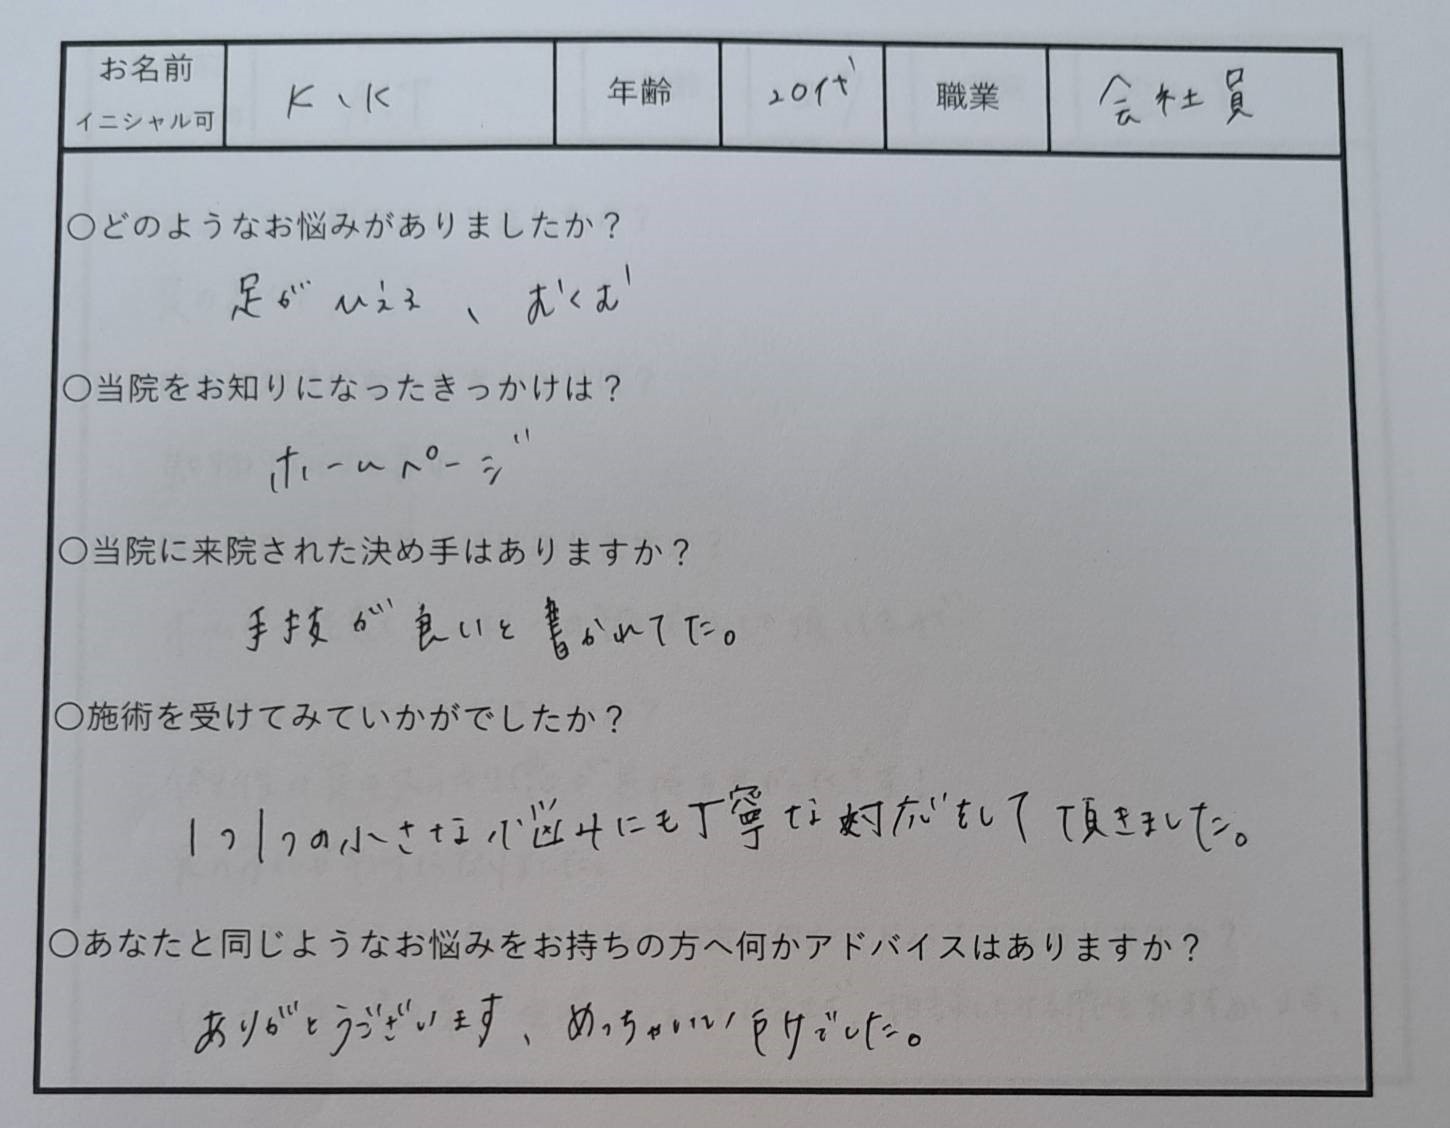 お名前 K、K 年齢 20代 職業 会社員
イニシャル可
○どのようなお悩みがありましたか？
足がひえる、むくむ
○当院をお知りになったきっかけは？
ホームページ
○当院に来院された決め手はありますか？
手技が良いと書かれてた。
○施術を受けてみていかがでしたか？
1つ1つの小さな悩みにも丁寧な対応をして頂きました。
○あなたと同じようなお悩みをお持ちの方へ何かアドバイスはありますか？
ありがとうございます、めっちゃいい でした。